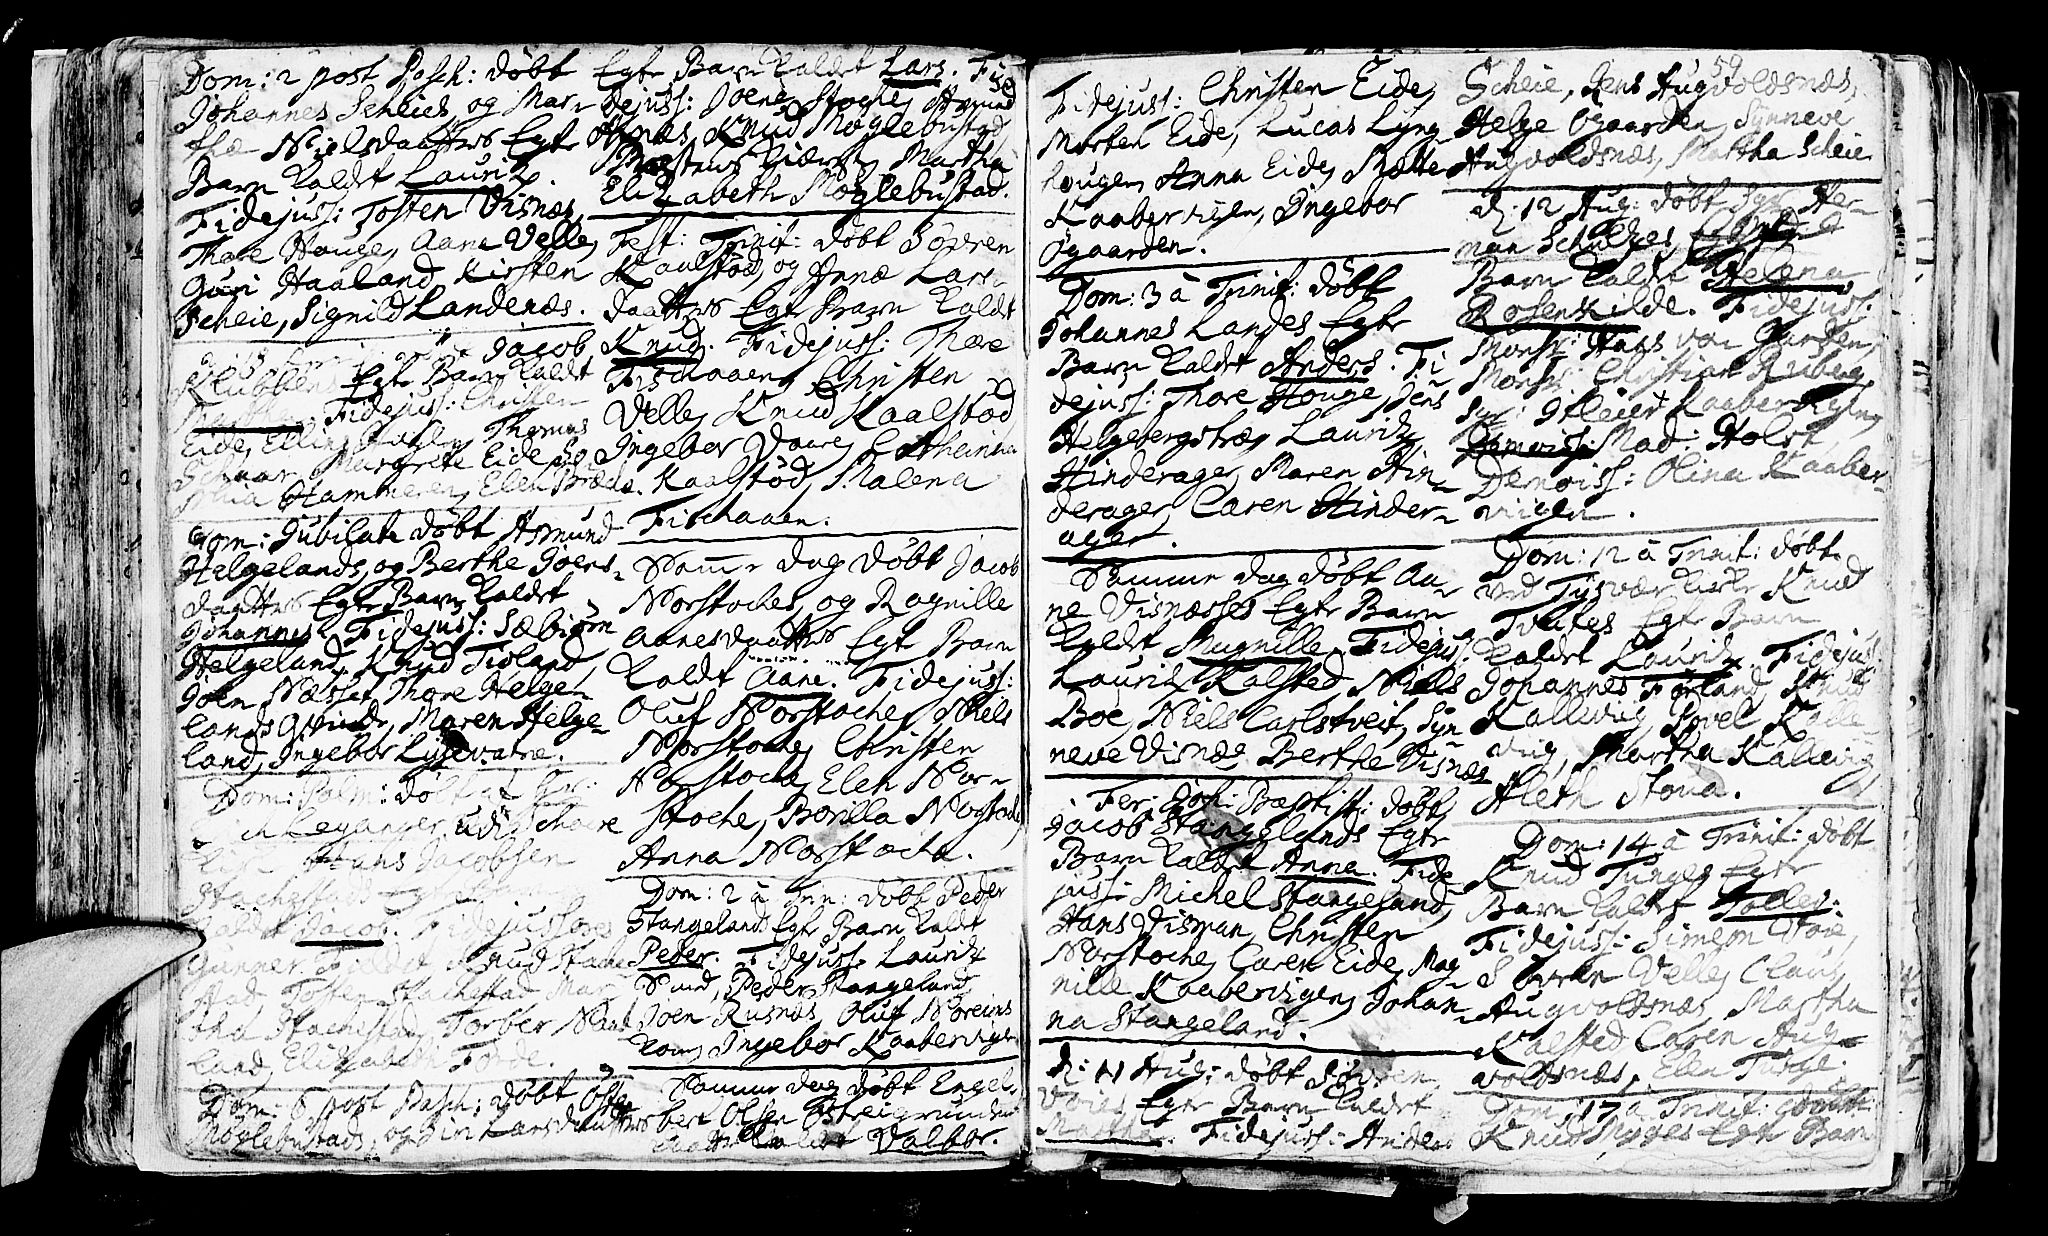 Dom: 2 post Pasch: døbt
Johannes Scheies, og Mar-
thæ Nielsdaatters Egte
Barn kaldt Lauritz.
Fidejuss: Tosten Visnæs,
Thore Hauge, Aane Velle,
Guri Haaland, Kirsten
Scheie, Signild Landenæs.
døbt Jacob
Klubbens Egte Barn kaldt
Fidejuss: Christen
Eide, Elling Thomas
Margrete Eide
Hammeren, Elen
Dom: Jubilate døbt Asmund
Helgelands, og Berthe Joens-
daatters Egte Barn kaldt
Johannes. Fidejuss: Sæbiørn
Helgeland, Knud Tioland
Joen Næsset, Thore Helge-
lands Qvinde, Maren Helge-
land, Ingebor Lysevatne.
Dom: Palm: døbt af Hr:
Leganger udi
Hans Jacobsen
Stachestads Egte Barn
kaldet Jacob. Fidejussores
Gunner Knud Stache
stad, Tosten Stachestad, Mar-
tha Stachestad, Torber
land, Elizabeth Førde.
Dom: 6 post Pasch: døbt Østen
Møglebustads, og Siri Larsdaatters
Egte Barn kaldt Lars. Fide
dejuss: Joen Stoche, Asmund
Aknæs, Knud Møglebustad,
Præstens Kiæreste, Martha
Elizabeth Møglebustad.
Fest: Trinit: døbt Søfren
Kaalstød, og Annæ Lars-
daatters Egte Barn kaldt
Knud. Fidejuss: Thore
Fischaaen, Christen
Velle, Knud Kaalstød
Ingebor Vaare, Cathrina
Kaalstød, Malena
Fischaaen.
Samme dag døbt Jacob
Norstoches, og Ragnille
Aanesdaatters Egte Barn
kaldt Aane. Fidejuss:
Oluf Norstoche, Niels
Norstoche, Christen
Norstoche, Elen Nor-
stoche, Borilla Norstoche,
Anna Norstoche.
Dom: 2 a Trin: døbt Peder
Stangelands Egte Barn kaldt
Peder. Fidejuss: Lauritz
Sund, Peder Stangeland,
Joen Rusnæs, Oluf Noreims
kone, Ingebor Kaabervigen
Samme dag døbt Engel-
bert Olsen Østreigrundes
Valbor.
Fidejuss: Christen Eide,
Morten Eide, Lucas Lyng-
hougen, Anna Eide, Mætte
Kaabervigen, Ingebor
Ogaarden.
Dom: 3 a Trinit: døbt
Johannes Landes Egte
Barn kaldt Anders. Fi
dejuss: Thore Houge, Jens
Helgebergstræ, Lauritz
Hinderager, Maren Hin-
derager, Caren Hinder-
ager.
Samme dag døbt Aa-
ne Visnæsses Egte Barn
kaldt Magnille. Fidejuss:
Lauritz Kalsted, Niels
Boe, Niels Carlstveit, Syn-
neve Visnæs, Berthe Visnæs
Fer: Joh: Baptist: døbt
Jacob Stangelands Egte
Barn kaldt Anna. Fide
juss: Michel Stangeland,
Hans Visman, Christen
Norstoche, Caren Eide, Mag-
nille Kaabervigen, Johan-
na Stangeland.
d: 11 Aug: døbt Søfren
Egte Barn kaldet
Fidejuss: Anders
59
Scheie, Jens Augvoldsnæs,
Helge Ogaarden, Synneve
Augvoldsnæs, Martha Scheie
d: 12 Aug: døbt Sgr: Her-
man Schultzes
Barn kaldt Helena
Rosenkilde. Fidejuss:
Monsr: Hans von Garsten,
Monsr: Christian Ruberg,
Sgr: Kaabervigen,
Mad: Holst,
Demoiss: Olina Kaaber-
viigen.
Dom: 12 a Trinit: døbt
ved Tysvær kirke Knud
Tveites Egte Barn
kaldet Lauritz. Fidejuss:
Johannes Førland, Knud
Kallevig, Povel Kalle
vig, Martha Kallevig,
Aleth Stona.
Dom: 14 a Trinit: døbt
Knud Tunges Egte
Barn kaldet Tolles.
Fidejuss: Simeon Vore,
Søvren Velle, Claus
Augvoldsnæs, Martha
Kalsted, Caren Aug-
voldsnæs, Elen Tunge.
Dom: 17 a Trinit: døbt
Knud Myges Egte Barn